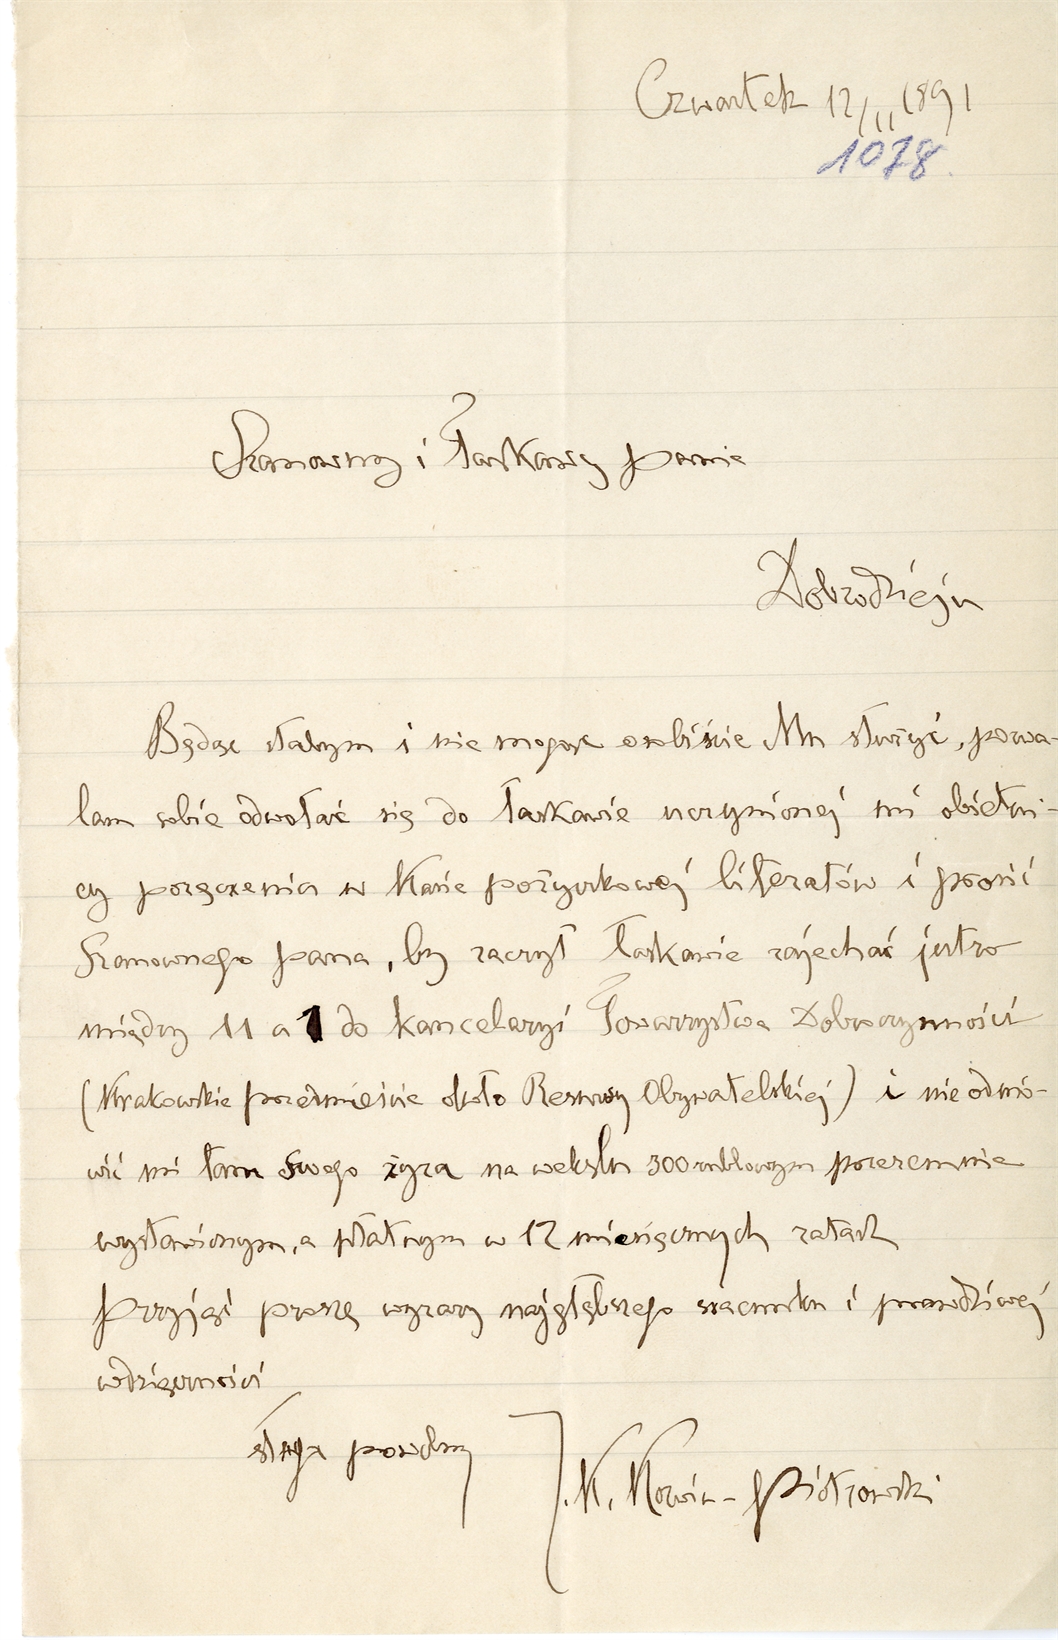 Czwartek 12/II 1891
1078.
Szanowny i Łaskawy Panie
Dobrodzieju
Będąc słabym i nie mogąc osobiście Mu służyć, pozwa-
lam sobie odwołać się do łaskawie uczynionej mi obietni-
cy poręczenia w Kasie pożyczkowej literatów i prosić
Szanownego Pana, by raczył łaskawie zajechać jutro
między 11 a 1 do kancelaryi Towarzystwa Dobroczynności
(Krakowskie przedmieście około Resursy Obywatelskiej) i nie odmó-
wić mi tam Swego żyra na wekslu 300 rublowym przezemnie
wystawionym, a płatnym w 12 miesięcznych ratach
Przyjąć proszę wyrazy najgłębszego szacunku i prawdziwej
wdzięczności
sługa powolny
J. K. Korwin-Piotrowski